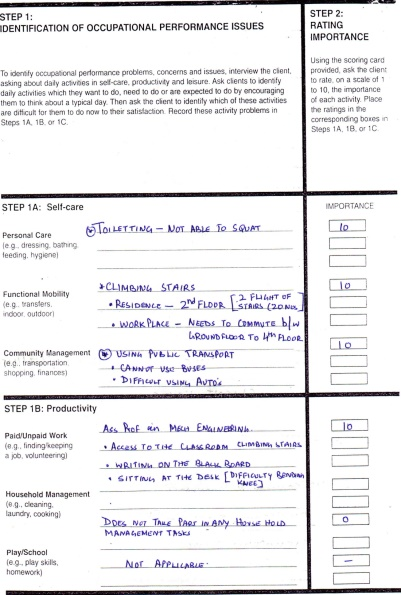 STEP 1:
IDENTIFICATION OF OCCUPATIONAL PERFORMANCE ISSUES
To identify occupational performance problems, concerns and issues, interview the client,
asking about daily activities in self-care, productivity and leisure. Ask clients to identify
daily activities which they want to do, need to do or are expected to do by encouraging
them to think about a typical day. Then ask the client to identify which of these activities
are difficult for them to do now to their satisfaction. Record these activity problems in
Steps 1A, 1B, or 1C.
STEP 2:
RATING
IMPORTANCE
Using the scoring card
provided, ask the client
to rate, on a scale of 1
to 10, the importance
of each activity. Place
the ratings in the
corresponding boxes in
Steps 1A, 1B, or 1C.
STEP 1A: Self-care
IMPORTANCE
Personal Care
(e.g., dressing, bathing,
feeding, hygiene)
TOILETTING – NOT ABLE TO SQUAT
10
Functional Mobility
(e.g., transfers,
indoor, outdoor)
* CLIMBING STAIRS
10
• RESIDENCE – 2nd FLOOR [2 FLIGHT OF
STAIRS (20 NOS]
• WORKPLACE – NEEDS TO COMMUTE b/w
GROUNDFLOOR TO 4th FLOOR
Community Management
(e.g., transportation,
shopping, finances)
* USING PUBLIC TRANSPORT
10
• CANNOT USE BUSES
• DIFFICULT USING AUTO's
STEP 1B: Productivity
Paid/Unpaid Work
(e.g., finding/keeping
a job, volunteering)
Ass Prof in MECH ENGINEERING.
10
• ACCESS TO THE CLASSROAM CLIMBING STAIRS
• WRITING ON THE BLACK BOARD
• SITTING AT THE DESK [DIFFICULTY BENDING
KNEE]
Household Management
(e.g., cleaning,
laundry, cooking)
DOES NOT TAKE PART IN ANY HOUSE HOLD
MANAGEMENT TASKS
0
Play/School
(e.g., play skills,
homework)
NOT APPLICABLE.
–